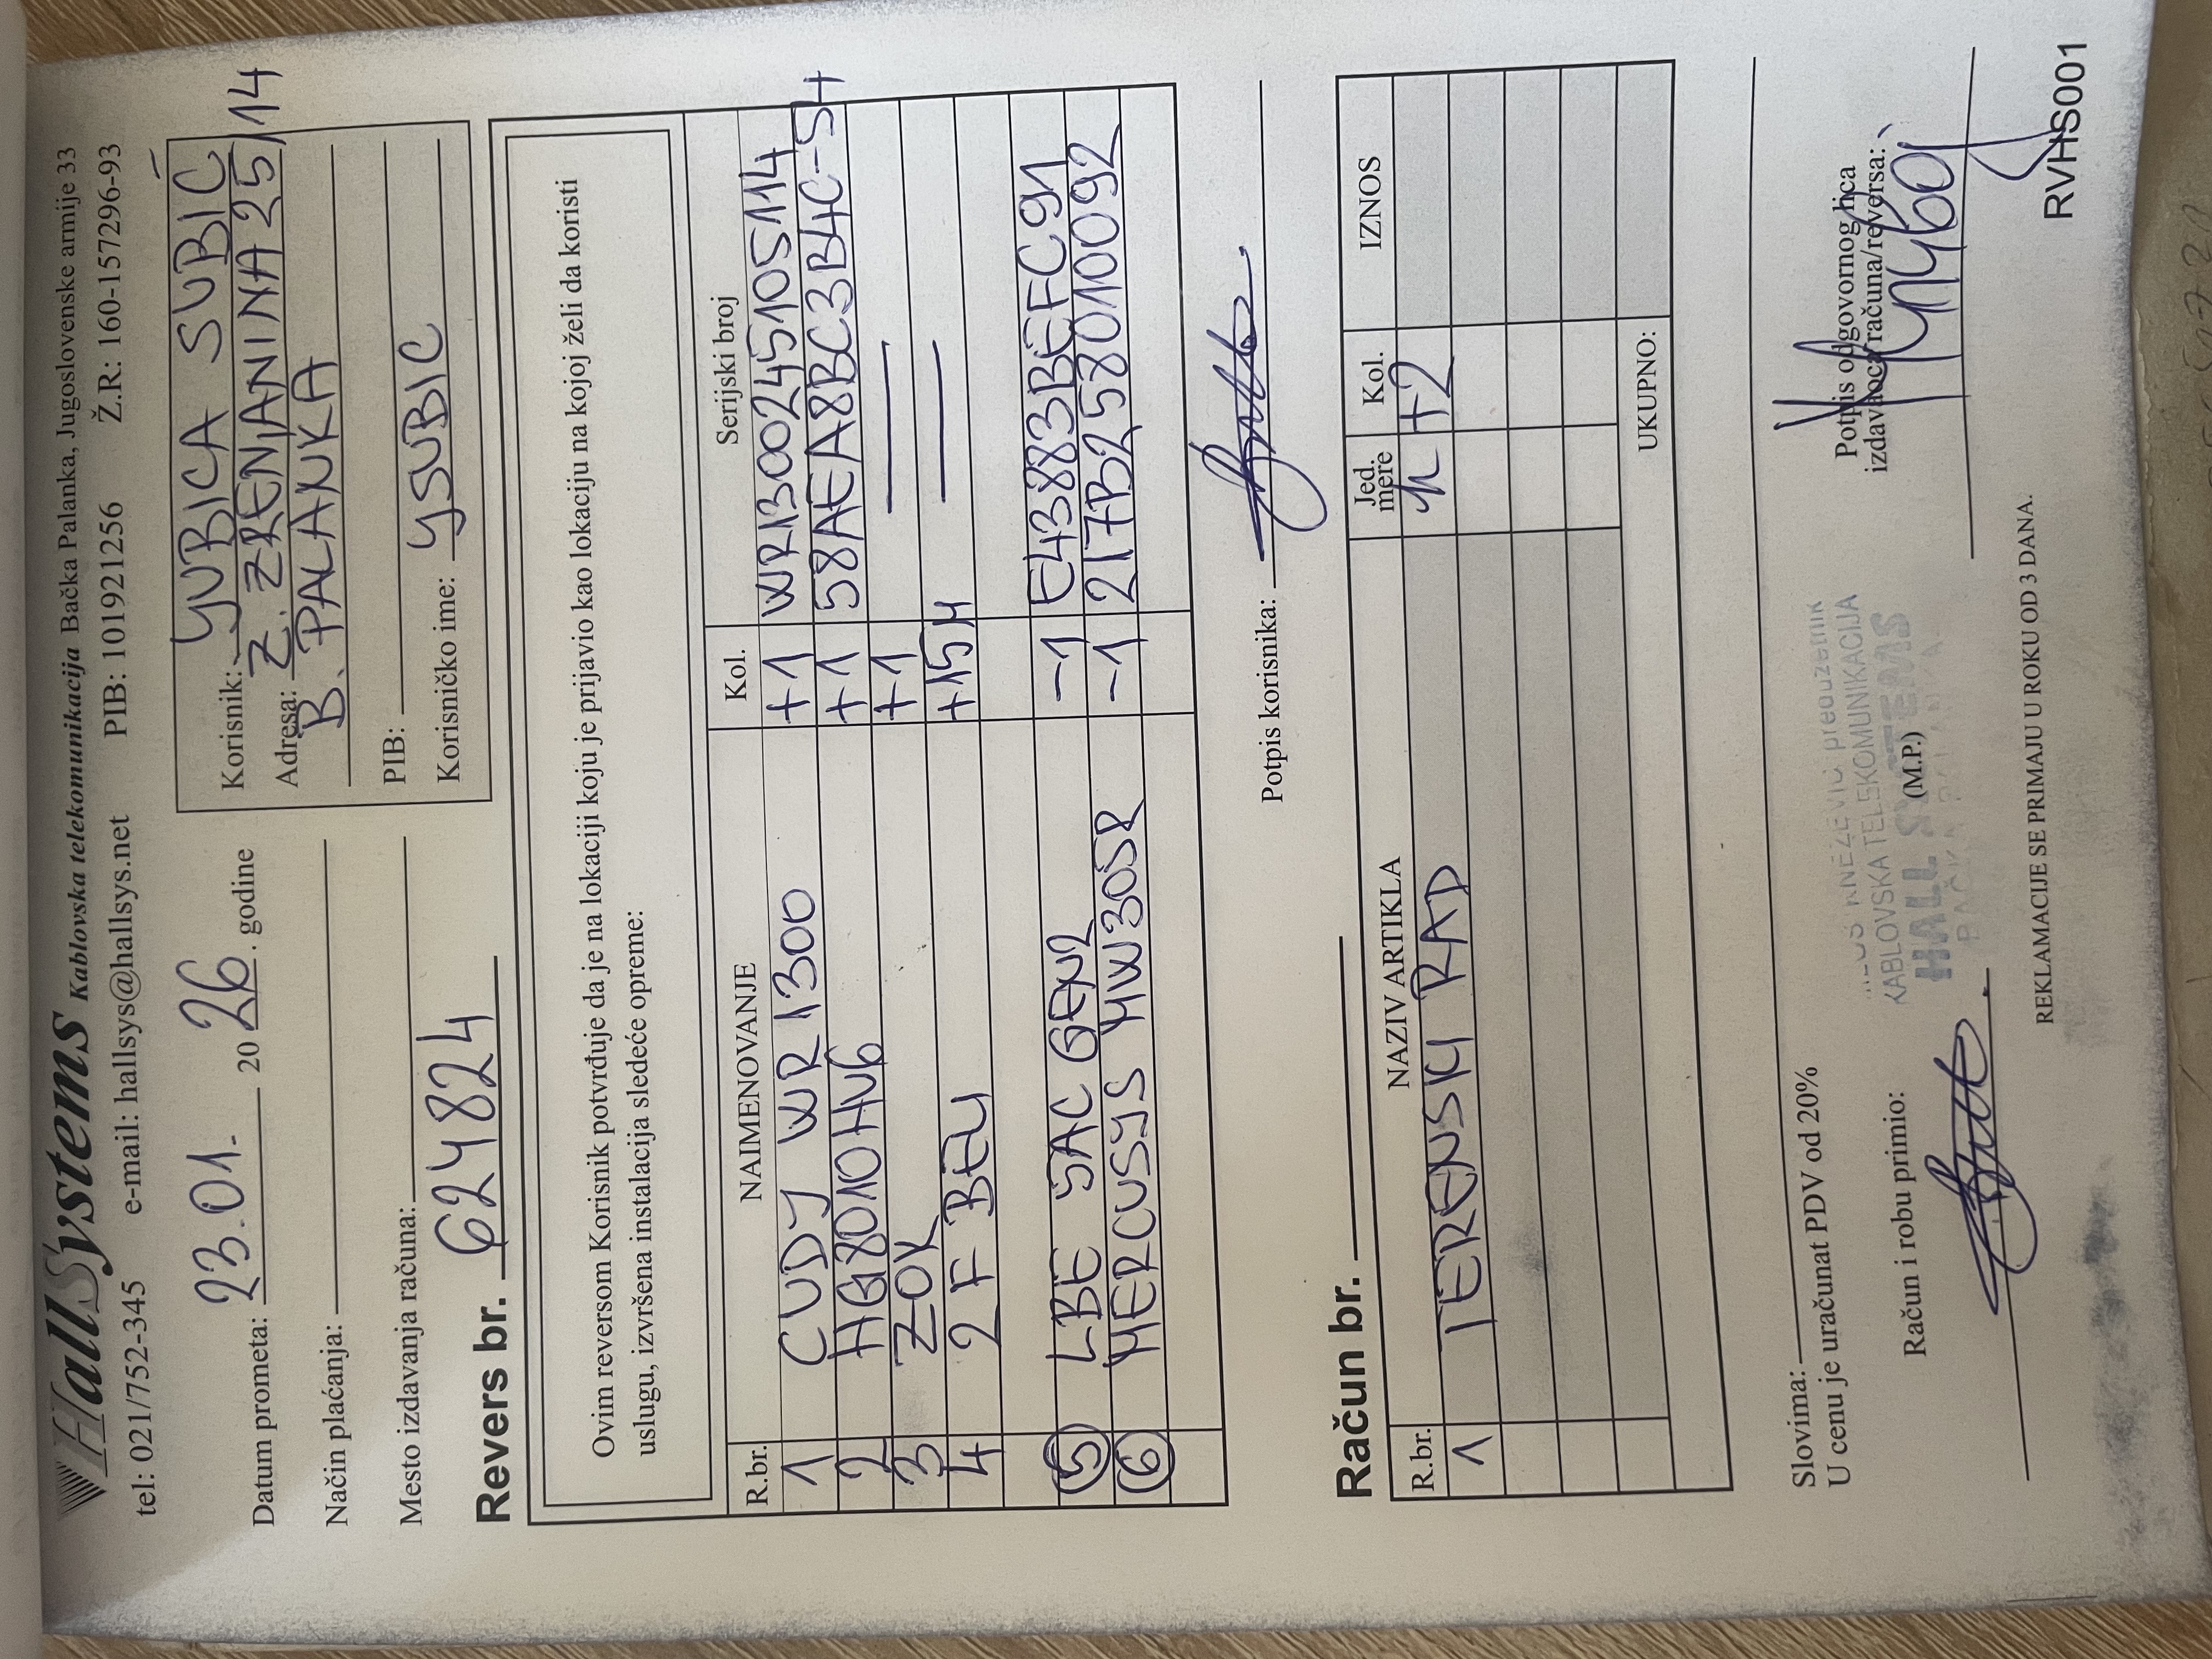 HallSystems Kablovska telekomunikacija Bačka Palanka, Jugoslovenske armije 33
tel: 021/752-345 e-mail: hallsys@hallsys.net PIB: 101921256 Ž.R: 160-157296-93
Datum prometa: 23.01. 2026. godine
Način plaćanja:
Mesto izdavanja računa:
Korisnik: YUBICA SUBIĆ
Adresa: Z. ZRENJANINA 25/14
B. PALANKA
PIB:
Korisničko ime: YSUBIC
Revers br. 624824
Ovim reversom Korisnik potvrđuje da je na lokaciji koju je prijavio kao lokaciju na kojoj želi da koristi
uslugu, izvršena instalacija sledeće opreme:
R.br. NAIMENOVANJE Kol. Serijski broj
1 CUDY WR1300 +1 WR1300245105114
2 HG8010HV6 +1 58AEA8BC3B4C-S4
3 ZOK +1 —
4 2F BELI +15M —
5 LBE 5AC GEN2 -1 E43883BEFC91
6 MERCUSYS MW305R -1 217B258010092
Potpis korisnika:
Račun br.
R.br. NAZIV ARTIKLA Jed. mere Kol. IZNOS
1 TERENSKI RAD h +2
UKUPNO:
Slovima:
U cenu je uračunat PDV od 20%
Račun i robu primio:
preduzetnik
KABLOVSKA TELEKOMUNIKACIJA
HALL SYSTEMS
(M.P.)
Potpis odgovornog lica
izdavaoca računa/reversa:
REKLAMACIJE SE PRIMAJU U ROKU OD 3 DANA.
RVHS001